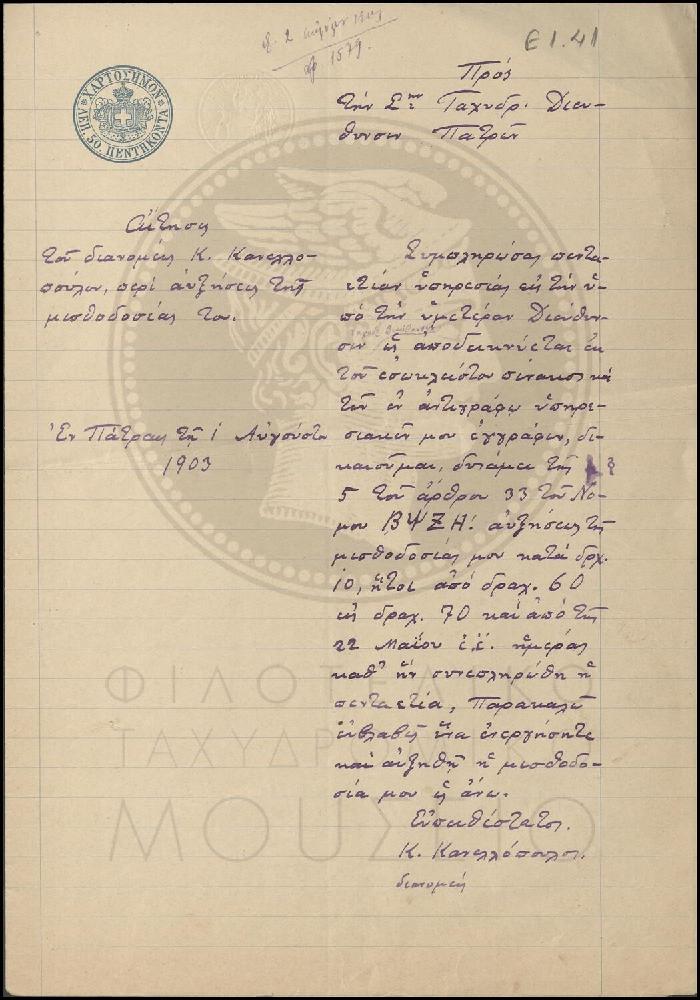 ε. 2 Αυγούστου 1903
αρ. 1579.
Ε 1.41
Πρός
τὴν Σην Ταχυδρ. Διεύ-
θυνσιν Πατρῶν
ΧΑΡΤΟΣΗΜΟΝ
ΛΕΠ. 50. ΠΕΝΤΗΚΟΝΤΑ
Αἴτησις
τοῦ διανομέως Κ. Κανελλο-
πούλου, περὶ αὐξήσεως τῆς
μισθοδοσίας του.
Ἐν Πάτραις τῇ 1 Αὐγούστου
1903
Συμπληρώσας πεντα-
ετίαν ὑπηρεσίας εἰς τὴν ὑ-
πὸ τὴν ὑμετέραν Διεύθυν-
σιν ὡς ἀποδεικνύεται ἐκ
τοῦ ἐσωκλείστου πίνακος καὶ
τῶν ἐν ἀντιγράφῳ ὑπηρε-
σιακῶν μου ἐγγράφων, δι-
καιοῦμαι, δυνάμει τῆς §
5 τοῦ ἄρθρου 33 τοῦ Νό-
μου ΒΨΖΗ! αὐξήσεως τῆς
μισθοδοσίας μου κατὰ δρχ.
10, ἤτοι ἀπὸ δραχ. 60
εἰς δραχ. 70 καὶ ἀπὸ τῆς
22 Μαΐου ἐ.ἔ. ἡμέρας
καθ' ἣν συνεπληρώθη ἡ
πενταετία, Παρακαλῶ
εὐλαβῶς ἵνα ἐνεργήσητε
καὶ αὐξηθῇ ἡ μισθοδο-
σία μου ὡς ἄνω.
Εὐπειθέστατος.
Κ. Κανελλόπουλος.
διανομεύς
ΦΙΛΟΤΕΛΙΚΟ
ΤΑΧΥΔΡΟΜΙΚΟ
ΜΟΥΣΕΙΟ